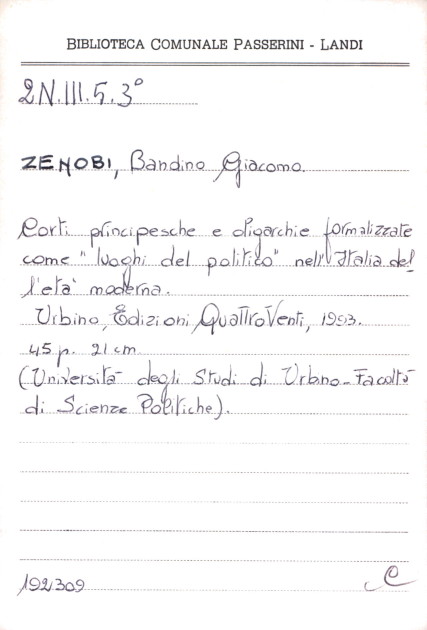 BIBLIOTECA COMUNALE PASSERINI - LANDI
2N.III.5.3°
ZENOBI, Bandino Giacomo.
Corti principesche e oligarchie formalizzate
come "luoghi del politico" nell'Italia del-
l'età moderna.
Urbino, Edizioni QuattroVenti, 1993.
45 p. 21 cm
(Università degli Studi di Urbino-Facoltà
di Scienze Politiche).
192309
C